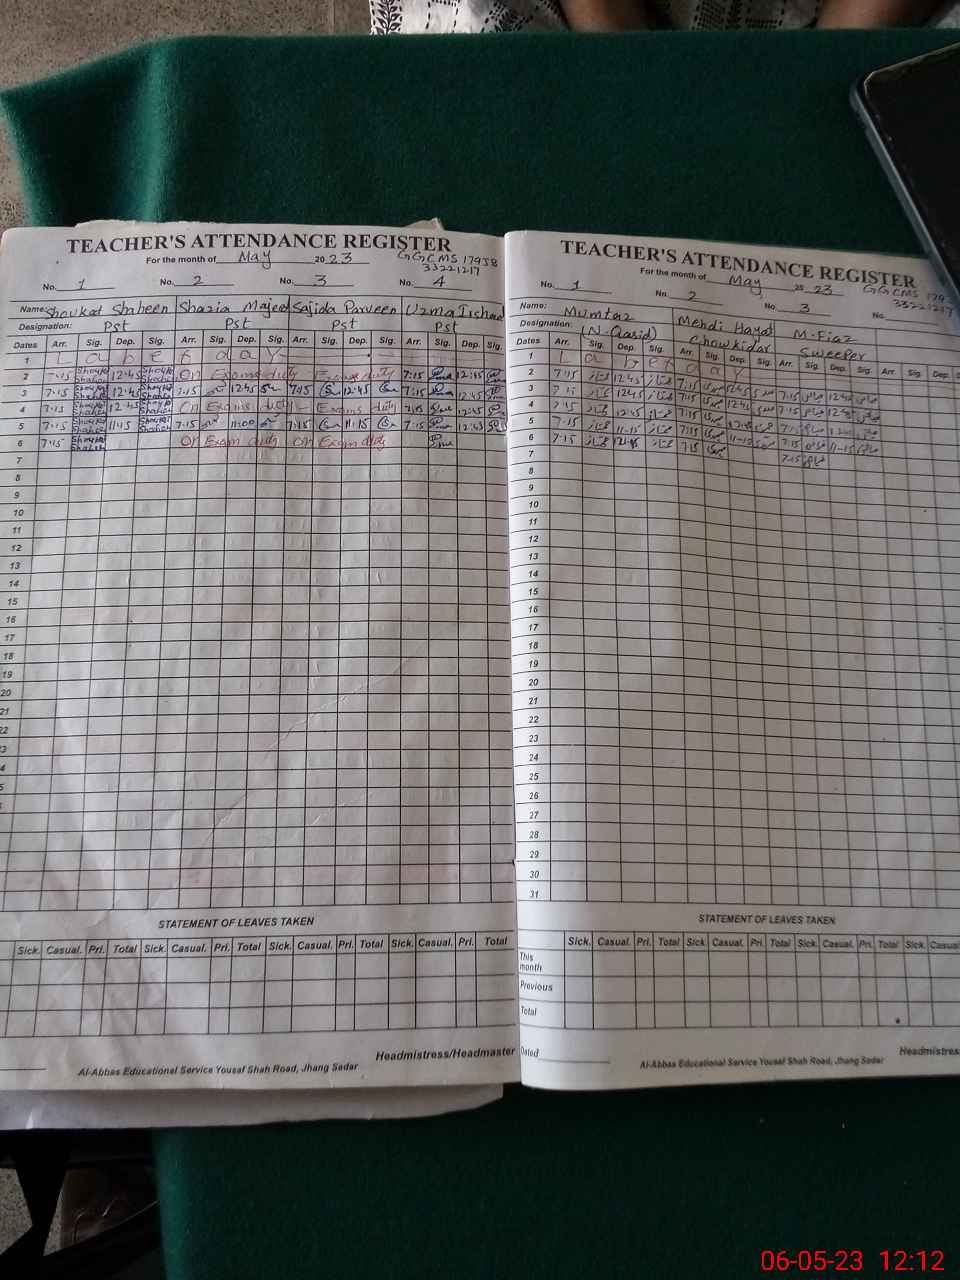 TEACHER'S ATTENDANCE REGISTER
For the month of May 2023 GGCMS 17958
33221217
No. 1 No. 2 No. 3 No. 4
Name: Shoukat Shaheen Shazia Majeed Sajida Parveen Uzma Irshad
Designation: Pst Pst Pst Pst
Dates Arr. Sig. Dep. Sig. Arr. Sig. Dep. Sig. Arr. Sig. Dep. Sig. Arr. Sig. Dep. Sig.
1 Labet day
2 7:15 Shoukat Shaheen 12:45 Shoukat Shaheen On Exams duty Exams duty 7:15 12:45
3 7:15 Shoukat Shaheen 12:45 Shoukat Shaheen 7:15 12:45 7:15 12:45 7:15 12:45
4 7:15 Shoukat Shaheen 12:45 Shoukat Shaheen On Exams duty Exams duty 7:15 12:45
5 7:15 Shoukat Shaheen 11:45 Shoukat Shaheen 7:15 11:00 7:15 11:15 7:15 12:45
6 7:15 Shoukat Shaheen On Exam duty On Exam duty
7
8
9
10
11
12
13
14
15
16
17
18
19
20
21
22
STATEMENT OF LEAVES TAKEN
Sick. Casual. Pri. Total Sick. Casual. Pri. Total Sick. Casual. Pri. Total Sick. Casual. Pri. Total
Headmistress/Headmaster
Al-Abbas Educational Service Yousaf Shah Road, Jhang Sadar
TEACHER'S ATTENDANCE REGISTER
For the month of May 2023 GGCMS 179
33221217
No. 1 No. 2 No. 3 No.
Name: Mumtaz Mehdi Hayat M-Fiaz
Designation: (N-Qasid) Chowkidar Sweeper
Dates Arr. Sig. Dep. Sig. Arr. Sig. Dep. Sig. Arr. Sig. Dep. Sig. Arr. Sig. Dep.
1 Labet day
2 7:15 12:45 7:15 12:45 7:15 12:45
3 7:15 12:45 7:15 12:45 7:15 12:45
4 7:15 12:45 7:15 12:45 7:15 12:45
5 7:15 11-15 7:15 11-15 7:15 11-15
6 7:15 7:15 7:15
7
8
9
10
11
12
13
14
15
16
17
18
19
20
21
22
23
24
25
26
27
28
29
30
31
STATEMENT OF LEAVES TAKEN
Sick. Casual. Pri. Total Sick Casual. Pri. Total Sick. Casual. Pri. Total Sick. Casual
This month
Previous
Total
Dated
Headmistress
Al-Abbas Educational Service Yousaf Shah Road, Jhang Sadar
06-05-23 12:12